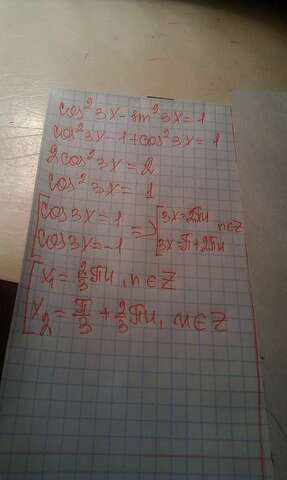 cos²3x-sin²3x=1
cos²3x-1+cos²3x=1
2cos²3x=2
cos²3x=1
[cos3x=1 => [3x=2πn n∈Z
[cos3x=-1 [3x=π+2πn
[x₁=2/3πn, n∈Z
[x₂=π/3+2/3πn, n∈Z